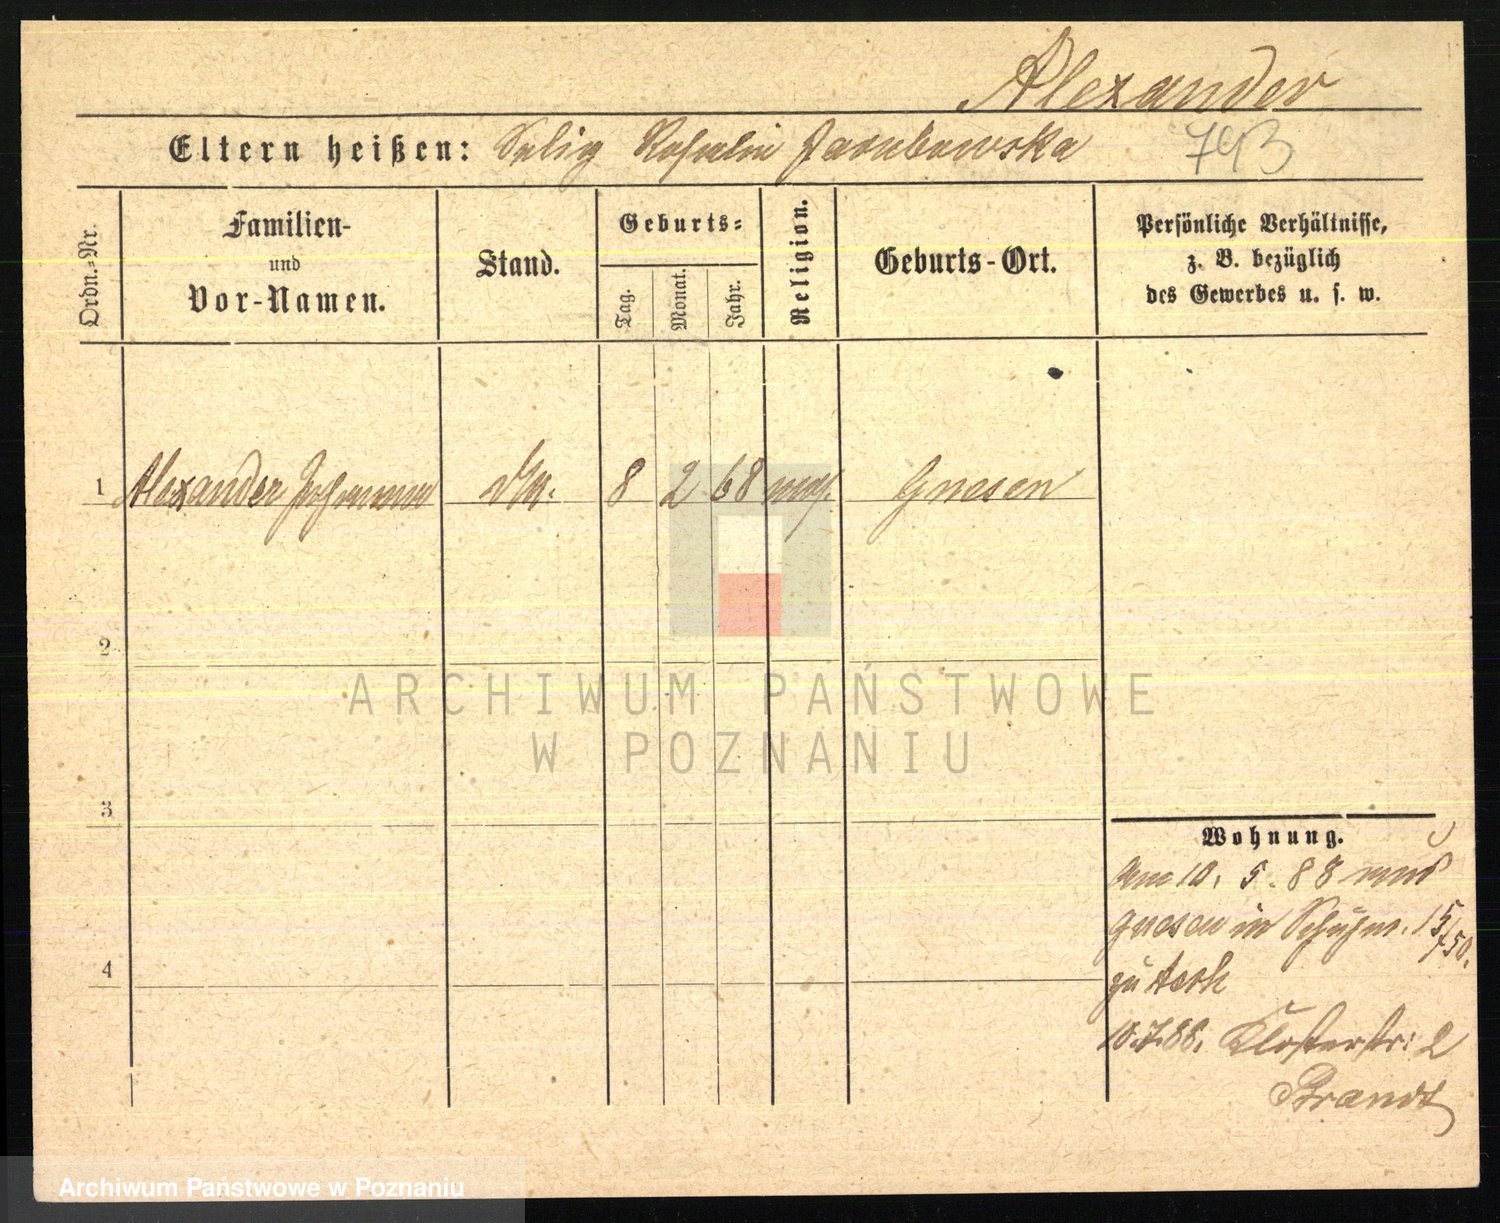 Alexander
Eltern heißen: Selig Rosalie Jacubowska
793
Ordn.-Nr.
Familien-
und
Vor-Namen.
Stand.
Geburts-
Tag.
Monat.
Jahr.
Religion.
Geburts-Ort.
Persönliche Verhältnisse,
z. B. bezüglich
des Gewerbes u. s. w.
1 Alexander 8 2 68 mos. Gnesen
2
3
4
Wohnung.
Am 10. 5. 88 aus
Gnesen in Schuhm. 15/50.
zu
10.7.88. Klosterstr: 2
Brandt
ARCHIWUM PAŃSTWOWE
W POZNANIU
Archiwum Państwowe w Poznaniu